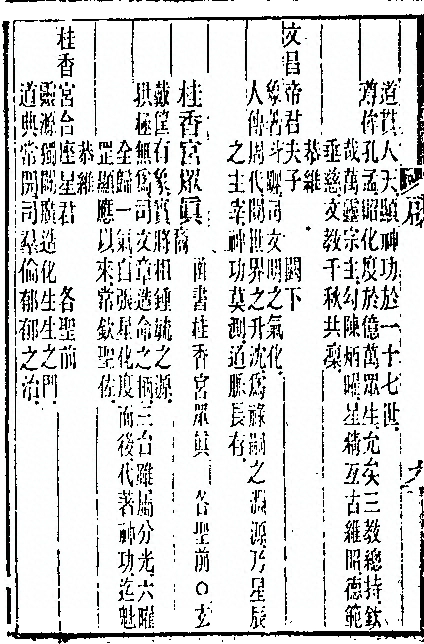 道貫人天顯神功於一十七世
尊侔孔孟昭化度於億萬眾生允矣三教總持欽
哉萬靈宗主勾陳炳曜星精亙古維昭德範
垂慈文教千秋共凜
恭維
文昌帝君夫子 闕下
象著斗躔司文明之氣化
人傳周代關世界之升沈為祿嗣之淵源乃星辰
之主宰神功莫測道脈長存
桂香宮眾真 函書桂香宮眾真 各聖前〇玄
戴筐有象實將相鍾毓之源
拱極無為司文章造命之柄三台雖屬分光六曜
全歸一氣自張星化度而後代著神功迄魁
罡顯應以來常欽聖佐
恭維
桂香宮台座星君 各聖前
靈源獨闢廣造化生生之門
道典常開司羣倫郁郁之治